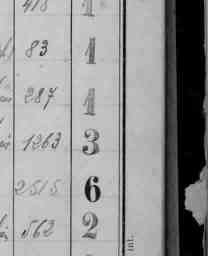 418 1
83 1
287 1
1263 3
2515 6
562 2
int.